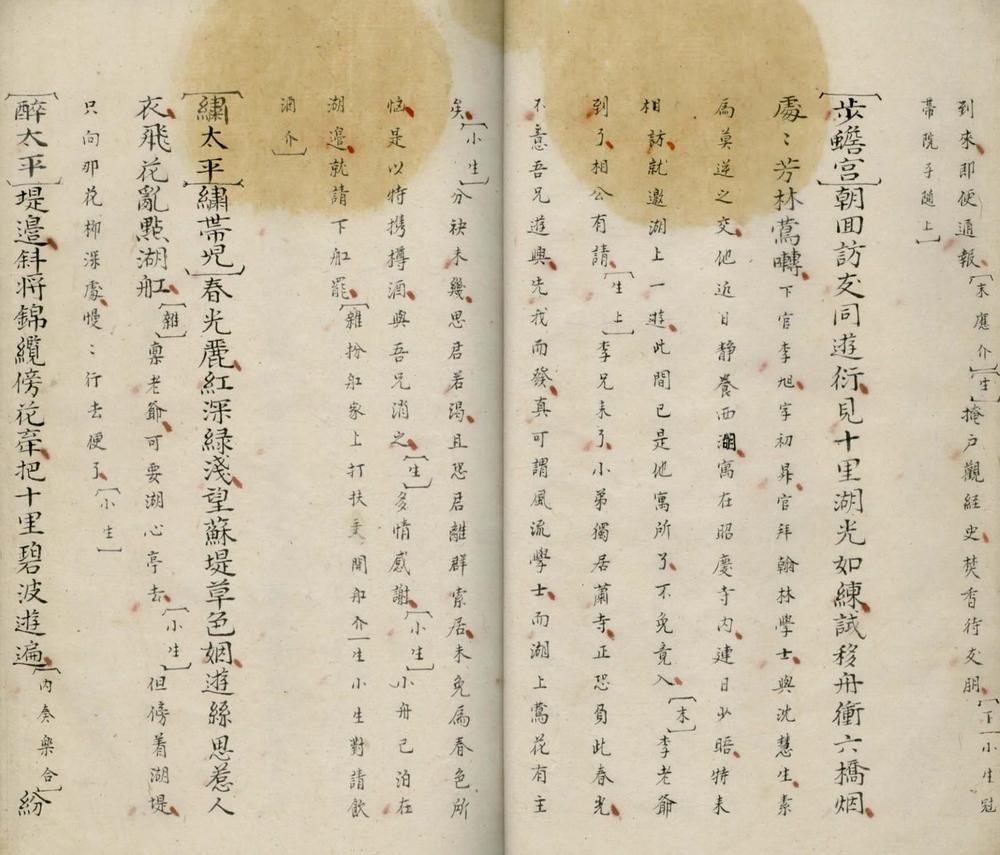 到來即便通報[末應介][生]掩戶觀經史焚香待友朋[下][小生冠
帶院子隨上]
[步蟾宮]朝回訪友同遊衍見十里湖光如練試移舟衝六橋烟
處〻芳林鶯囀下官李旭字初昇官拜翰林學士與沈慧生素
為莫逆之交他近日靜養西湖寓在昭慶寺內連日少晤特来
相訪就邀湖上一遊此間已是他寓所了不免竟入[末]李老爺
到了相公有請[生上]李兄来了小弟獨居蕭寺正恐負此春光
不意吾兄遊興先我而發真可謂風流學士而湖上鶯花有主
矣[小生]分袂未幾思君若渴且恐君離群索居未免為春色所
惱是以特携撙酒與吾兄消之[生]多情感謝[小生]小舟已泊在
湖邉就請下舡罷[雜扮舡家上打扶手開舡介][生小生對請飲
酒介]
[繡太平][繡帶児]春光麗紅深緑淺望蘇堤草色姻遊絲思惹人
衣飛花亂點湖舡[雜]禀老爺可要湖心亭去[小生]但傍着湖堤
只向那花柳深處慢〻行去便了[小生]
[醉太平]堤邉斜將錦纜傍花牽把十里碧波遊遍[内奏樂合]紛